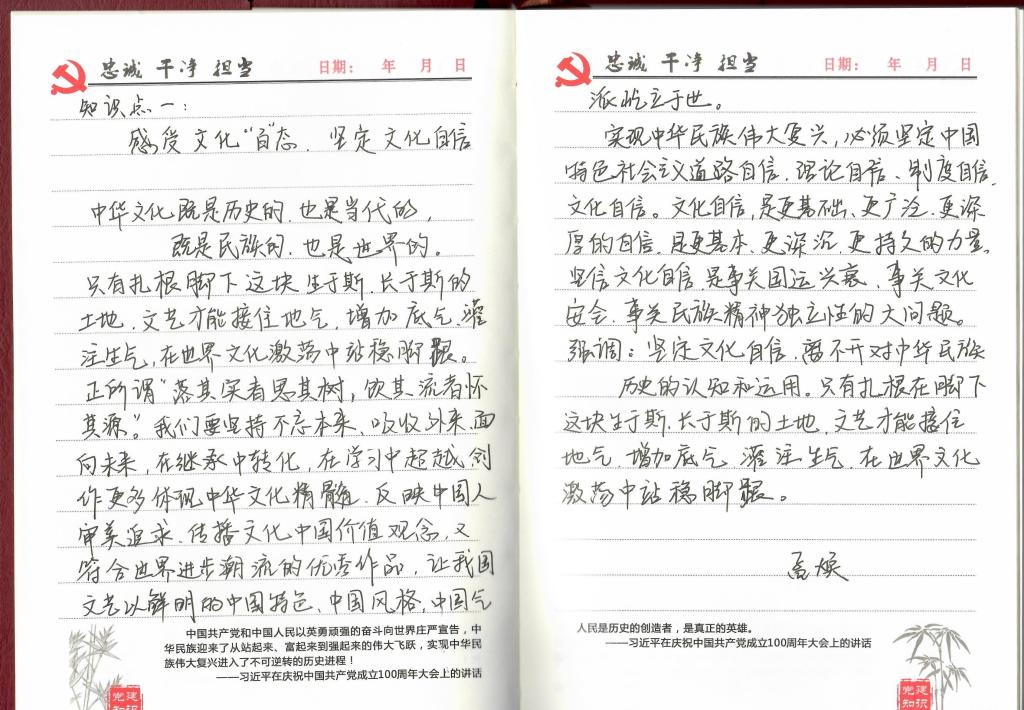 忠诚 干净 担当
日期： 年 月 日
知识点一：
感受文化“百”态、坚定文化自信
中华文化既是历史的、也是当代的，
既是民族的、也是世界的。
只有扎根脚下这块生于斯、长于斯的
土地，文艺才能接住地气、增加底气、灌
注生气，在世界文化激荡中站稳脚跟。
正所谓“落其实者思其树，饮其流者怀
其源。”我们要坚持不忘本来、吸收外来、面
向未来，在继承中转化，在学习中超越，创
作更多体现中华文化精髓、反映中国人
审美追求、传播文化中国价值观念、又
符合世界进步潮流的优秀作品，让我国
文艺以鲜明的中国特色、中国风格、中国气
中国共产党和中国人民以英勇顽强的奋斗向世界庄严宣告，中
华民族迎来了从站起来、富起来到强起来的伟大飞跃，实现中华民
族伟大复兴进入了不可逆转的历史进程！
——习近平在庆祝中国共产党成立100周年大会上的讲话
党建
知识
忠诚 干净 担当
日期： 年 月 日
派屹立于世。
实现中华民族伟大复兴，必须坚定中国
特色社会主义道路自信、理论自信、制度自信、
文化自信。文化自信，是更基础、更广泛、更深
厚的自信，是更基本、更深沉、更持久的力量。
坚信文化自信，是事关国运兴衰、事关文化
安全、事关民族精神独立性的大问题。
强调：坚定文化自信，离不开对中华民族
历史的认知和运用。只有扎根在脚下
这块生于斯、长于斯的土地，文艺才能接住
地气、增加底气、灌注生气，在世界文化
激荡中站稳脚跟。
人民是历史的创造者，是真正的英雄。
——习近平在庆祝中国共产党成立100周年大会上的讲话
党建
知识